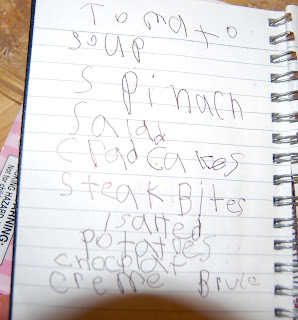 Tomato
soup
Spinach
Salad
cradcakes
steak Bites
salted
potatoes
chocolat
creme Brule
WARNING: